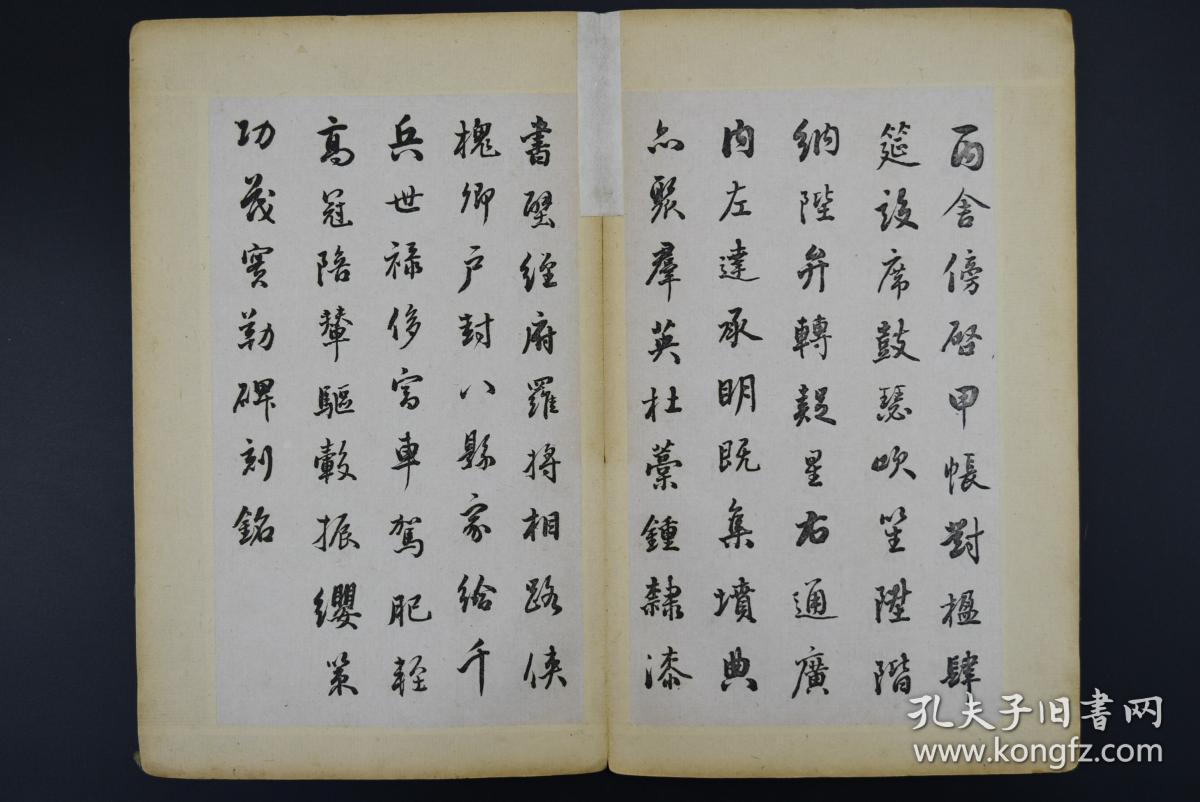 丙舍傍啓甲帳對楹肆
筵設席鼓瑟吹笙陞階
納陛弁轉疑星右通廣
内左達承明既集墳典
亦聚羣英杜藁鍾隸漆
書壁經府羅將相路俠
槐卿户封八縣家給千
兵世禄侈富車駕肥輕
高冠陪輦驅轂振纓策
功茂實勒碑刻銘
孔夫子旧書网
www.kongfz.com